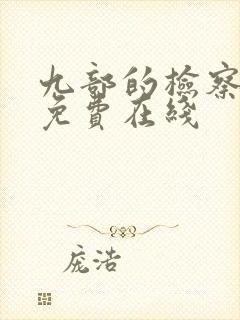 九部的檢察
免費在綫
庞浩